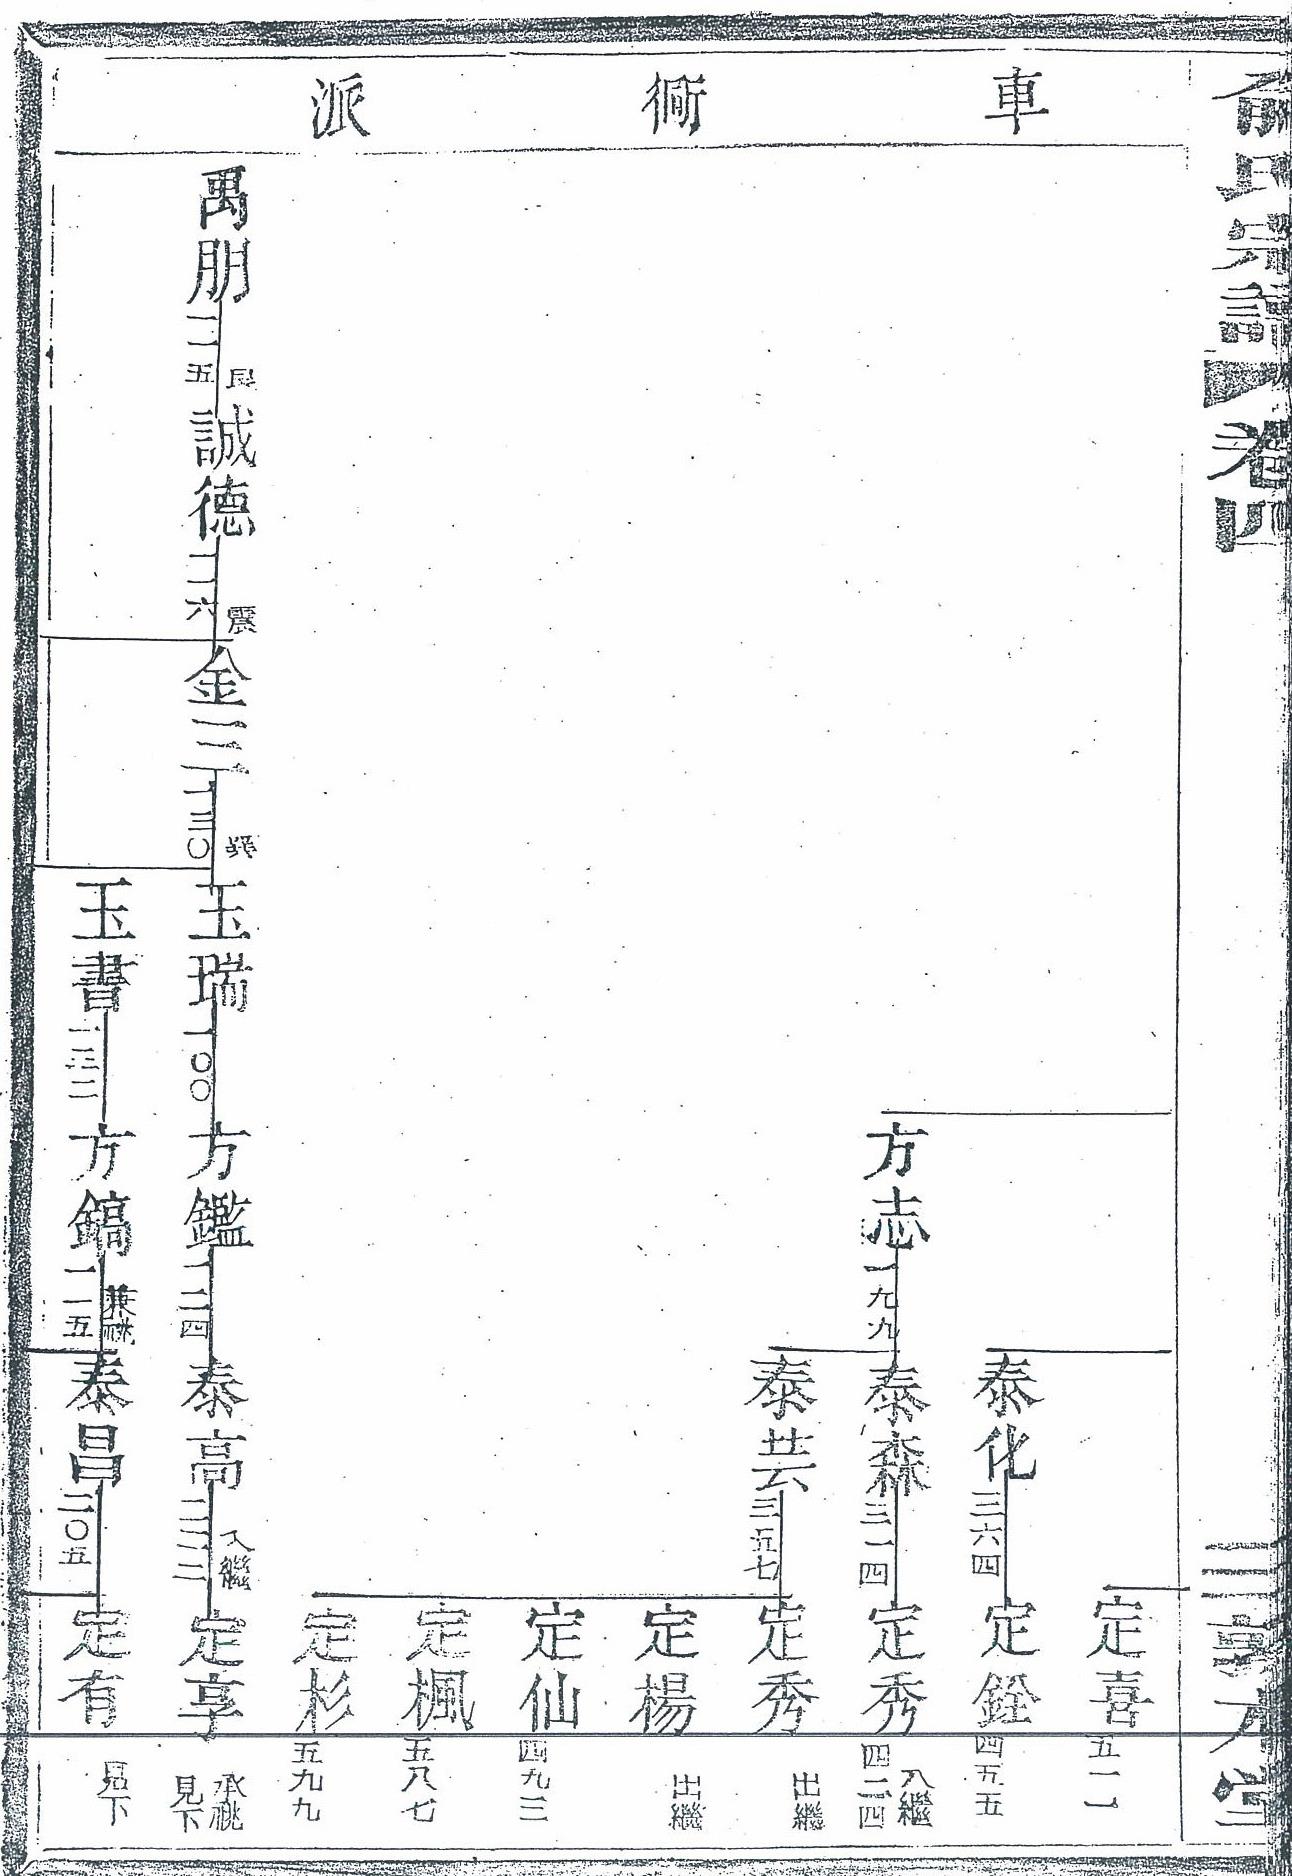 俞氏宗譜
卷四
三 敦本堂
車衕派
定喜 五一一
泰化 三六四
定銓 四五五
方志 一九九
泰森 三一四
定秀 四二四 入繼
泰芸 三五七
定秀 出繼
定楊 出繼
定仙 四九三
定楓 五八七
定杉 五九九
萬朋 一一五 良
誠德 二六 震
金三 一三〇
玉瑞 一〇〇
方鑑 一二四
泰高 二二二 入繼
定享 承祧 見下
玉書 一三二
方鎬 一一五 兼祧
泰昌 二〇五
定有 見下